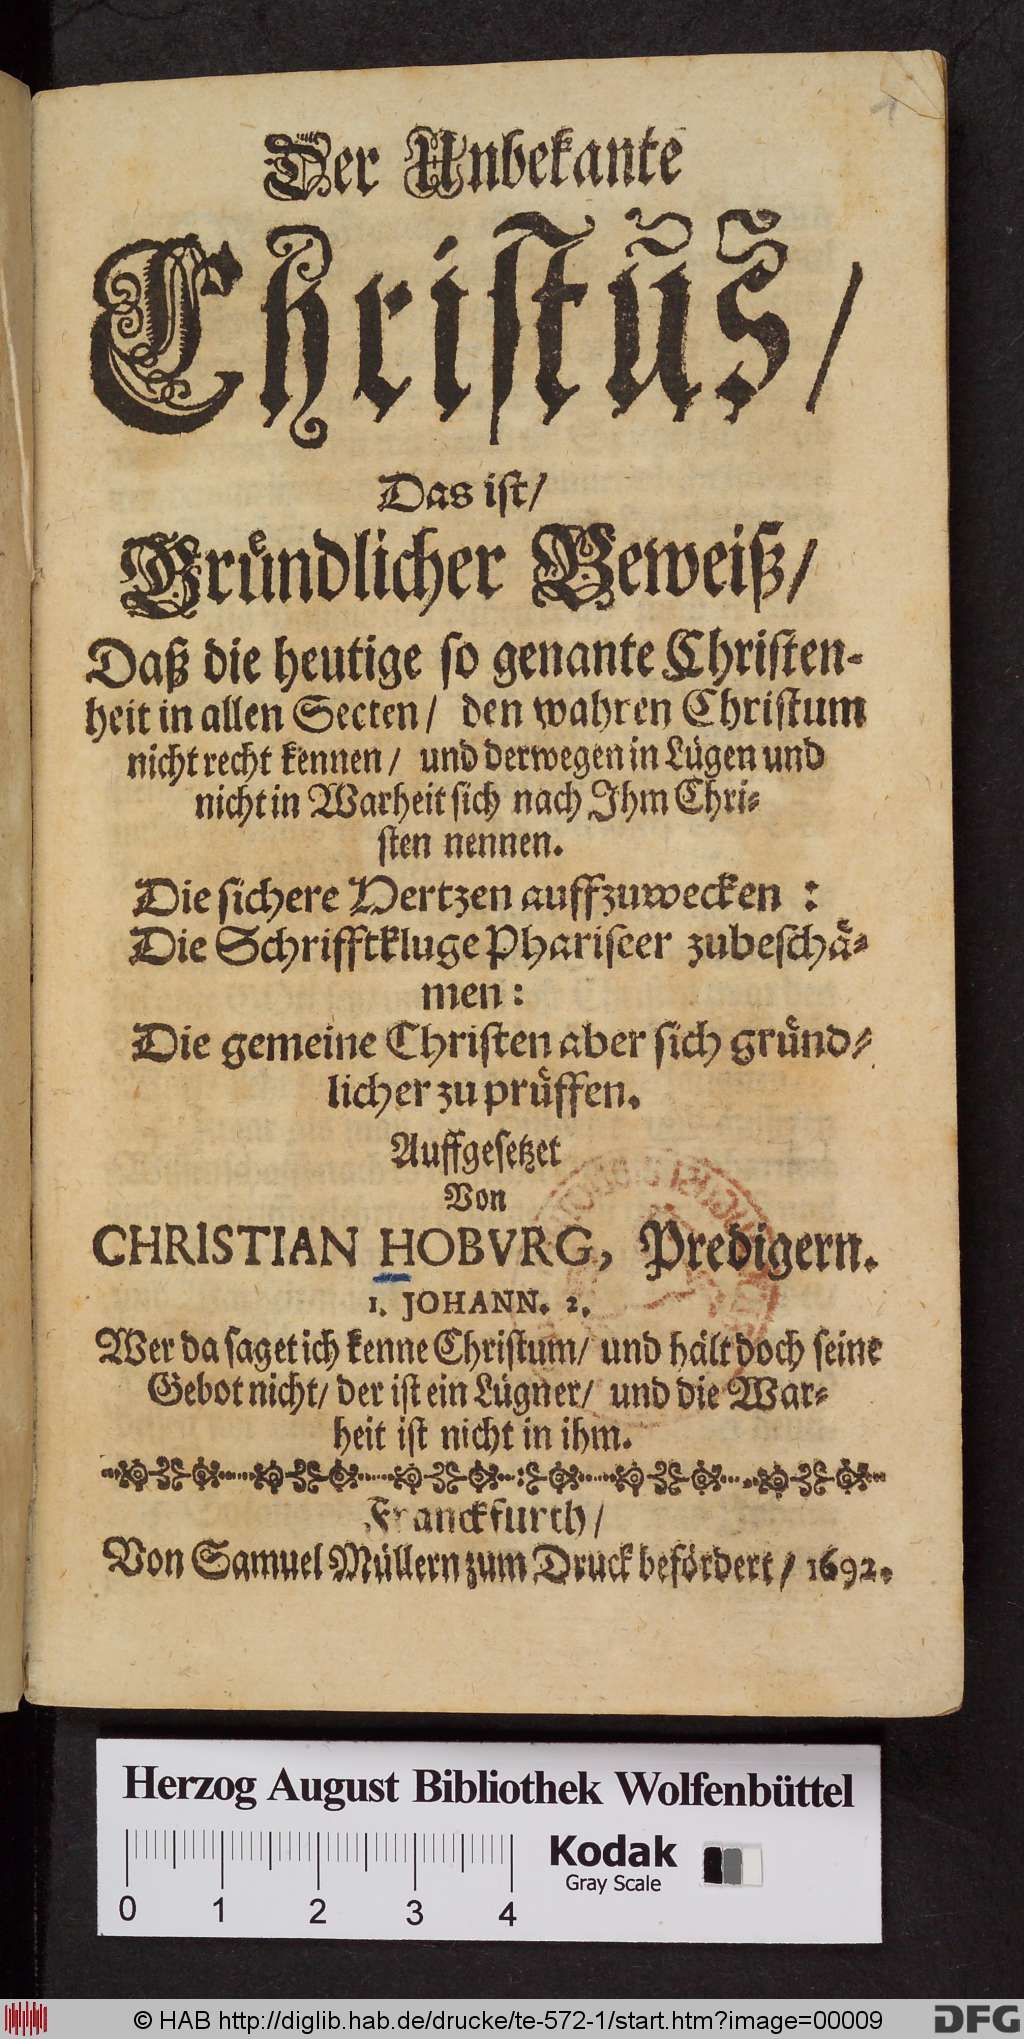 Der Unbekante
Christus/
Das ist/
Gruͤndlicher Beweiß/
Daß die heutige so genante Christen-
heit in allen Secten/ den wahren Christum
nicht recht kennen/ und derwegen in Lügen und
nicht in Warheit sich nach Ihm Chri-
sten nennen.
Die sichere Hertzen auffzuwecken :
Die Schrifftkluge Phariseer zubeschaͤ-
men :
Die gemeine Christen aber sich gruͤnd-
licher zu pruͤffen.
Auffgesetzet
Von
CHRISTIAN HOBVRG, Predigern.
1. JOHANN. 2.
Wer da saget ich kenne Christum/ und hält doch seine
Gebot nicht/ der ist ein Lügner/ und die War-
heit ist nicht in ihm.
Franckfurth/
Von Samuel Müllern zum Druck befördert/ 1692.
Herzog August Bibliothek Wolfenbüttel
0 1 2 3 4
Kodak
Gray Scale
© HAB http://diglib.hab.de/drucke/te-572-1/start.htm?image=00009
DFG